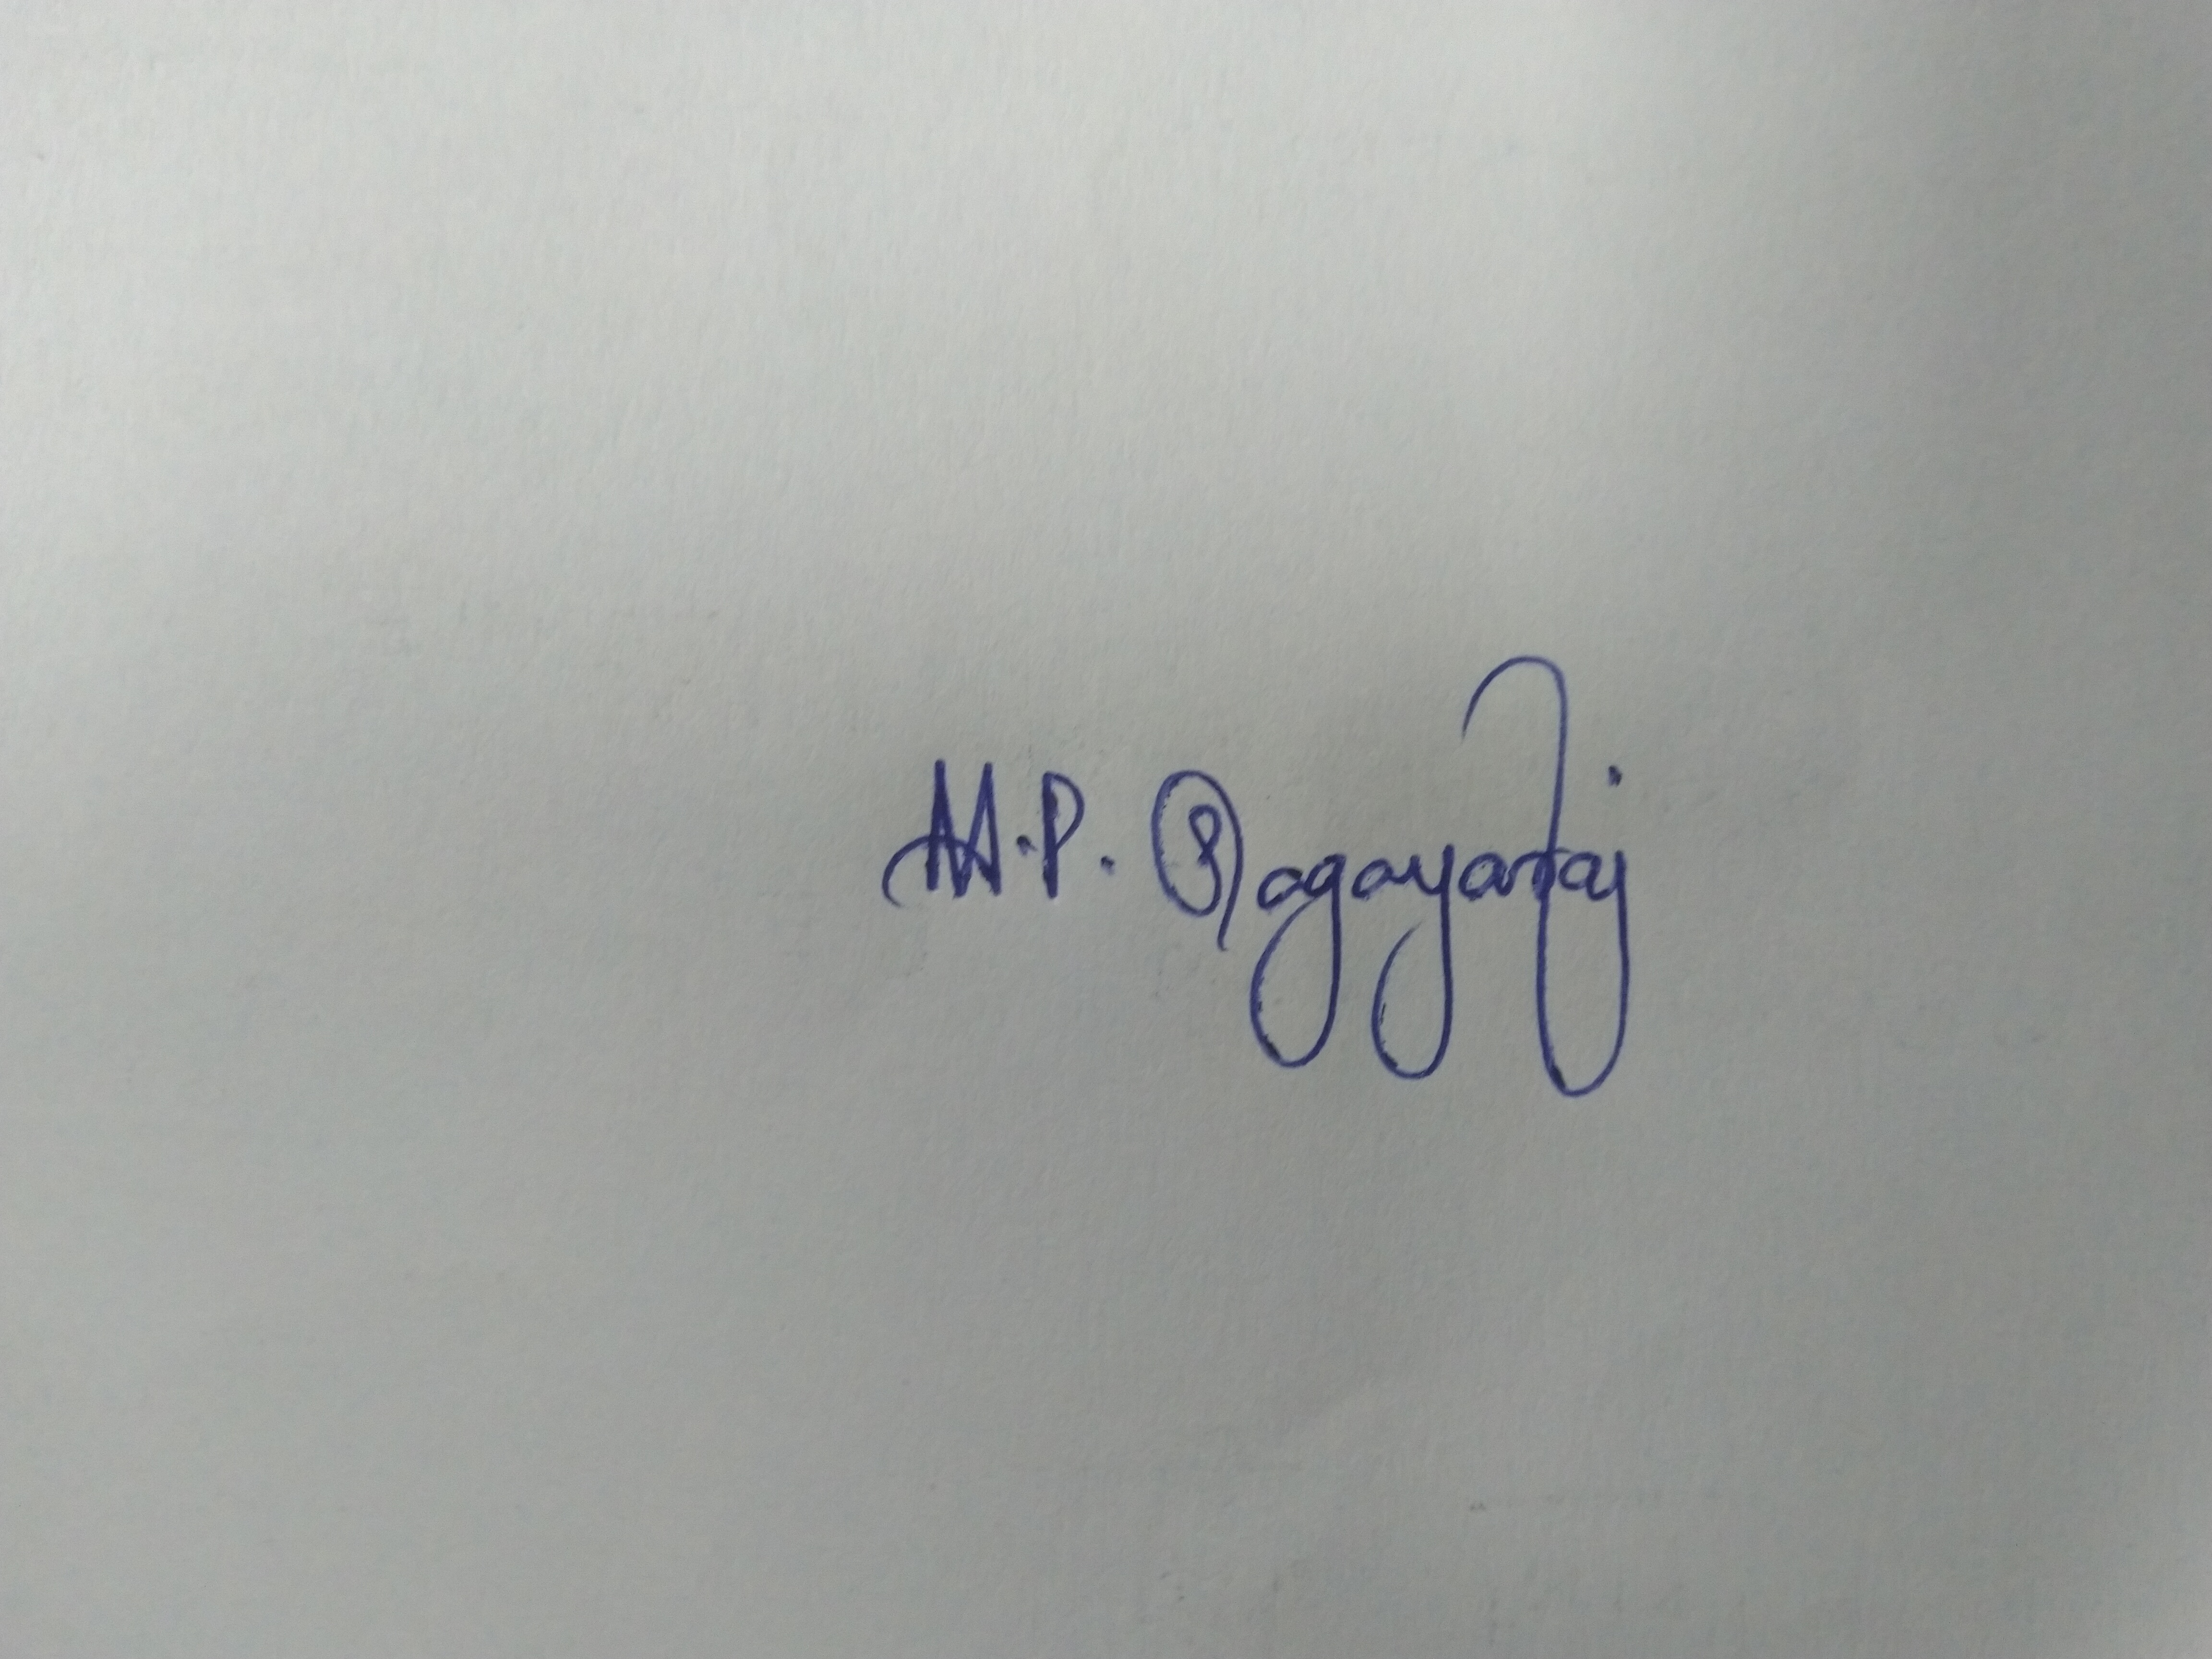 M.P. Sagayaraj